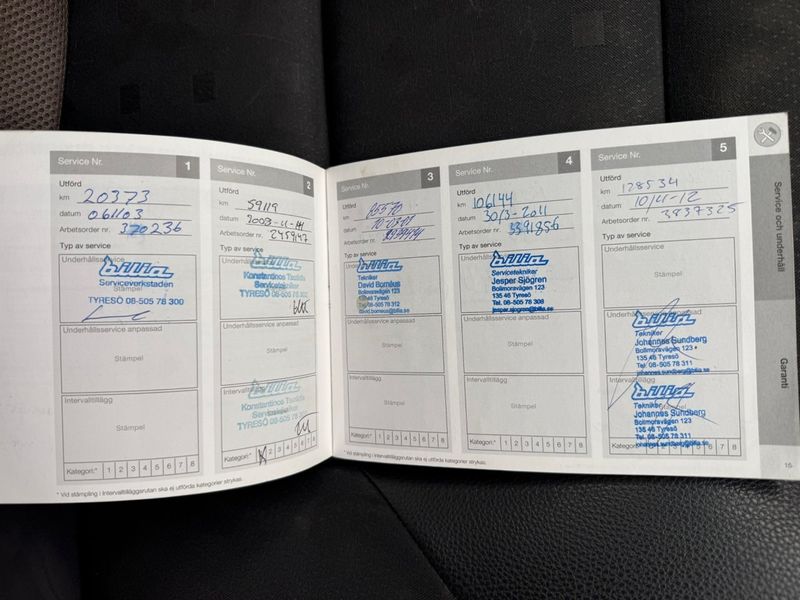 Service Nr. 1
Utförd
km 20373
datum 061103
Arbetsorder nr. 370236
Typ av service
Underhållsservice
bilia
Serviceverkstaden
Stämpel
TYRESÖ 08-505 78 300
Underhållsservice anpassad
Stämpel
Intervalltillägg
Stämpel
Kategori:* 1 2 3 4 5 6 7 8
* Vid stämpling i Intervalltilläggsrutan ska ej utförda kategorier strykas.
Service Nr. 2
Utförd
km 59119
datum
Arbetsorder nr. 2459147
Typ av service
bilia
Konstantinos
Servicetekniker
TYRESÖ 08-505 78 302
Underhållsservice anpassad
Stämpel
Intervalltillägg
bilia
Konstantinos
Servicetekniker
TYRESÖ 08-505 78 302
Kategori:* 2 3 4 5 6 7 8
Service Nr. 3
Utförd
km
datum
Arbetsorder nr.
Typ av service
bilia
Tekniker
David Bornéus
Bolimoravägen 123
135 46 Tyresö
Tel. 08-505 78 312
david.borneus@bilia.se
Underhållsservice anpassad
Stämpel
Intervalltillägg
Stämpel
Kategori:* 1 2 3 4 5 6 7 8
* Vid stämpling i Intervalltilläggsrutan ska ej utförda kategorier strykas.
Service Nr. 4
Utförd
km 106144
datum 30/3-2011
Arbetsorder nr. 3391856
Typ av service
bilia
Servicetekniker
Jesper Sjögren
Bolimoravägen 123
135 46 Tyresö
Tel. 08-505 78 308
jesper.sjogren@bilia.se
Underhållsservice anpassad
Stämpel
Intervalltillägg
Stämpel
Kategori:* 1 2 3 4 5 6 7 8
Service Nr. 5
Utförd
km 128534
datum 10/4-12
Arbetsorder nr. 3837325
Typ av service
Underhållsservice
Stämpel
bilia
Tekniker
Johannes Sundberg
Bolimoravägen 123
135 46 Tyresö
Tel. 08-505 78 311
johannes.sundberg@bilia.se
Intervalltillägg
bilia
Tekniker
Johannes Sundberg
Bolimoravägen 123
135 46 Tyresö
Tel. 08-505 78 311
johannes.sundberg@bilia.se
Kategori:* 1 2 3 4 5 6 7 8
Service och underhåll
Garanti
15